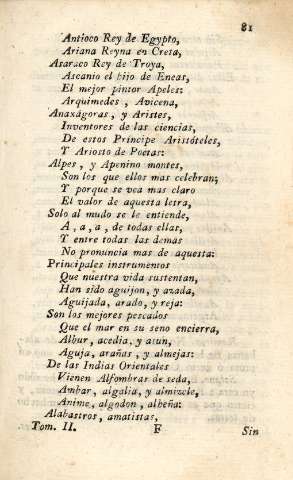 81
Antioco Rey de Egypto,
Ariana Reyna en Creta,
Asaraco Rey de Troya,
Ascanio el hijo de Eneas,
El mejor pintor Apeles:
Arquimedes, Avicena,
Anaxágoras, y Aristes,
Inventores de las ciencias,
De estos Principe Aristóteles,
Y Ariosto de Poetas:
Alpes, y Apenino montes,
Son los que ellos mas celebran;
Y porque se vea mas claro
El valor de aquesta letra,
Solo al mudo se le entiende,
A, a, a, de todas ellas,
Y entre todas las demas
No pronuncia mas de aquesta:
Principales instrumentos
Que nuestra vida sustentan,
Han sido aguijon, y azada,
Aguijada, arado, y reja:
Son los mejores pescados
Que el mar en su seno encierra,
Albur, acedia, y atun,
Aguja, arañas, y almejas:
De las Indias Orientales
Vienen Alfombras de seda,
Ambar, algalia, y almizcle,
Anime, algodon, alheña:
Alabastros, amatistas,
Tom. II. F Sin